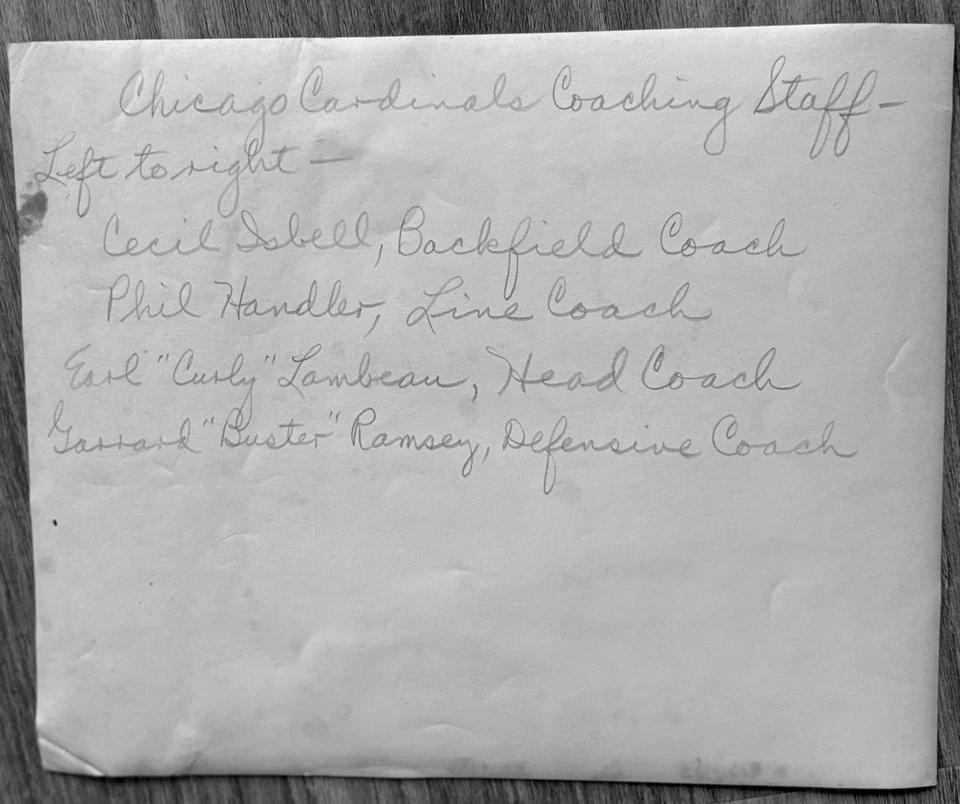 Chicago Cardinals Coaching Staff —
Left to right —
Cecil Isbell, Backfield Coach
Phil Handler, Line Coach
Earl "Curly" Lambeau, Head Coach
Garrard "Buster" Ramsey, Defensive Coach